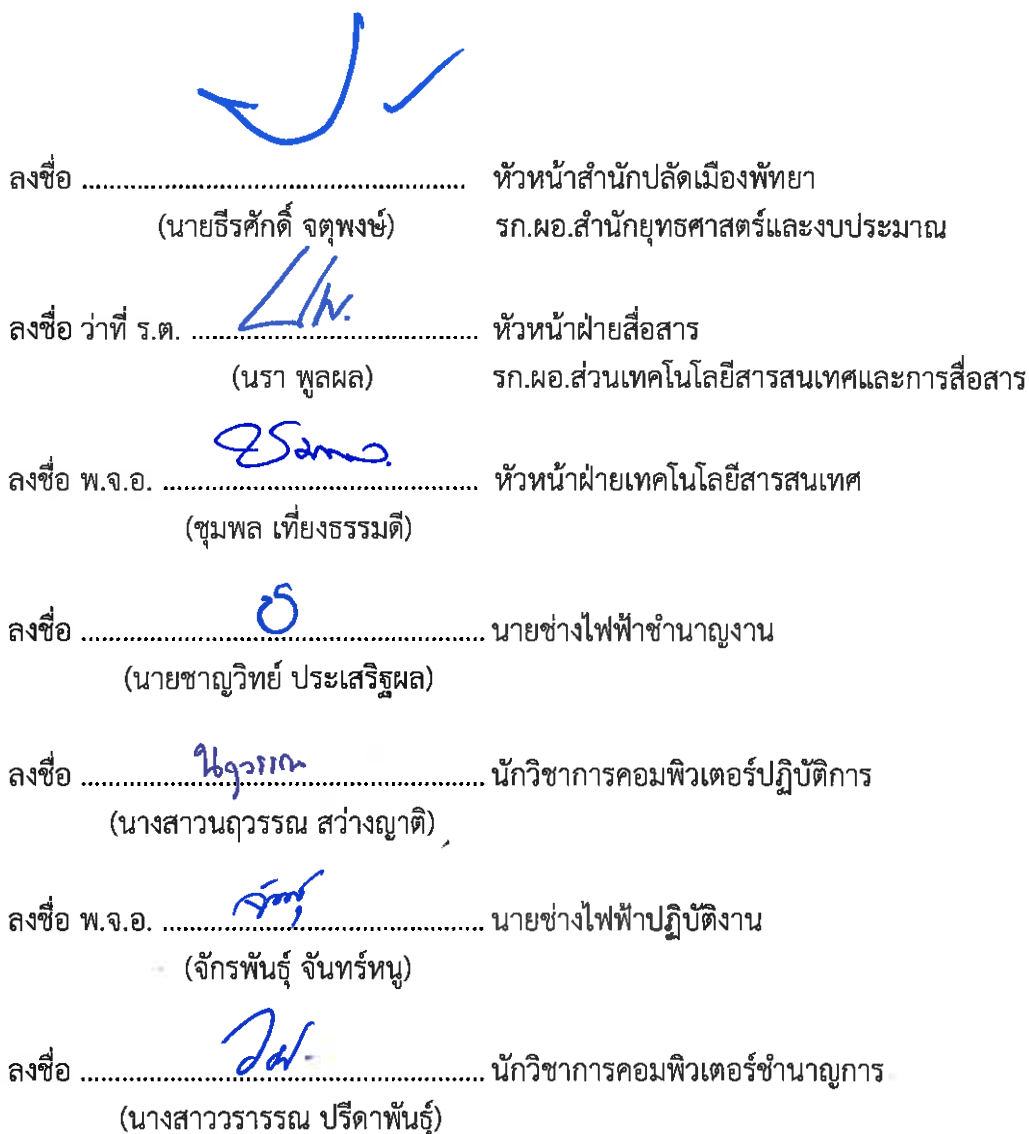 ลงชื่อ ........................................................ หัวหน้าสำนักปลัดเมืองพัทยา
(นายธีรศักดิ์ จตุพงษ์) รก.ผอ.สำนักยุทธศาสตร์และงบประมาณ
ลงชื่อ ว่าที่ ร.ต. ........................................................ หัวหน้าฝ่ายสื่อสาร
(นรา พูลผล) รก.ผอ.ส่วนเทคโนโลยีสารสนเทศและการสื่อสาร
ลงชื่อ พ.จ.อ. ........................................................ หัวหน้าฝ่ายเทคโนโลยีสารสนเทศ
(ชุมพล เที่ยงธรรมดี)
ลงชื่อ ........................................................ นายช่างไฟฟ้าชำนาญงาน
(นายชาญวิทย์ ประเสริฐผล)
ลงชื่อ ........................................................ นักวิชาการคอมพิวเตอร์ปฏิบัติการ
นฤวรรณ
(นางสาวนฤวรรณ สว่างญาติ)
ลงชื่อ พ.จ.อ. ........................................................ นายช่างไฟฟ้าปฏิบัติงาน
(จักรพันธุ์ จันทร์หนู)
ลงชื่อ ........................................................ นักวิชาการคอมพิวเตอร์ชำนาญการ
(นางสาววรารรณ ปรีดาพันธุ์)